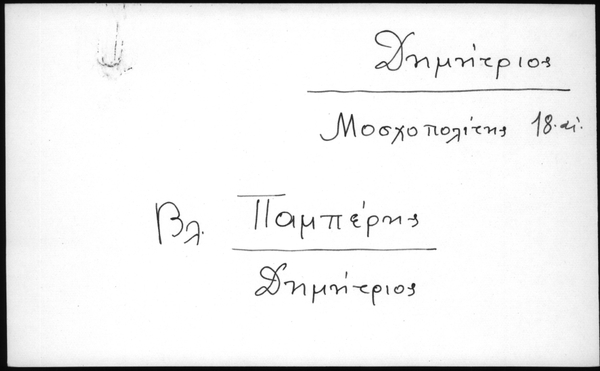 Δημήτριος
Μοσχοπολίτης 18. αἰ.
Βλ. Παμπέρης
Δημήτριος